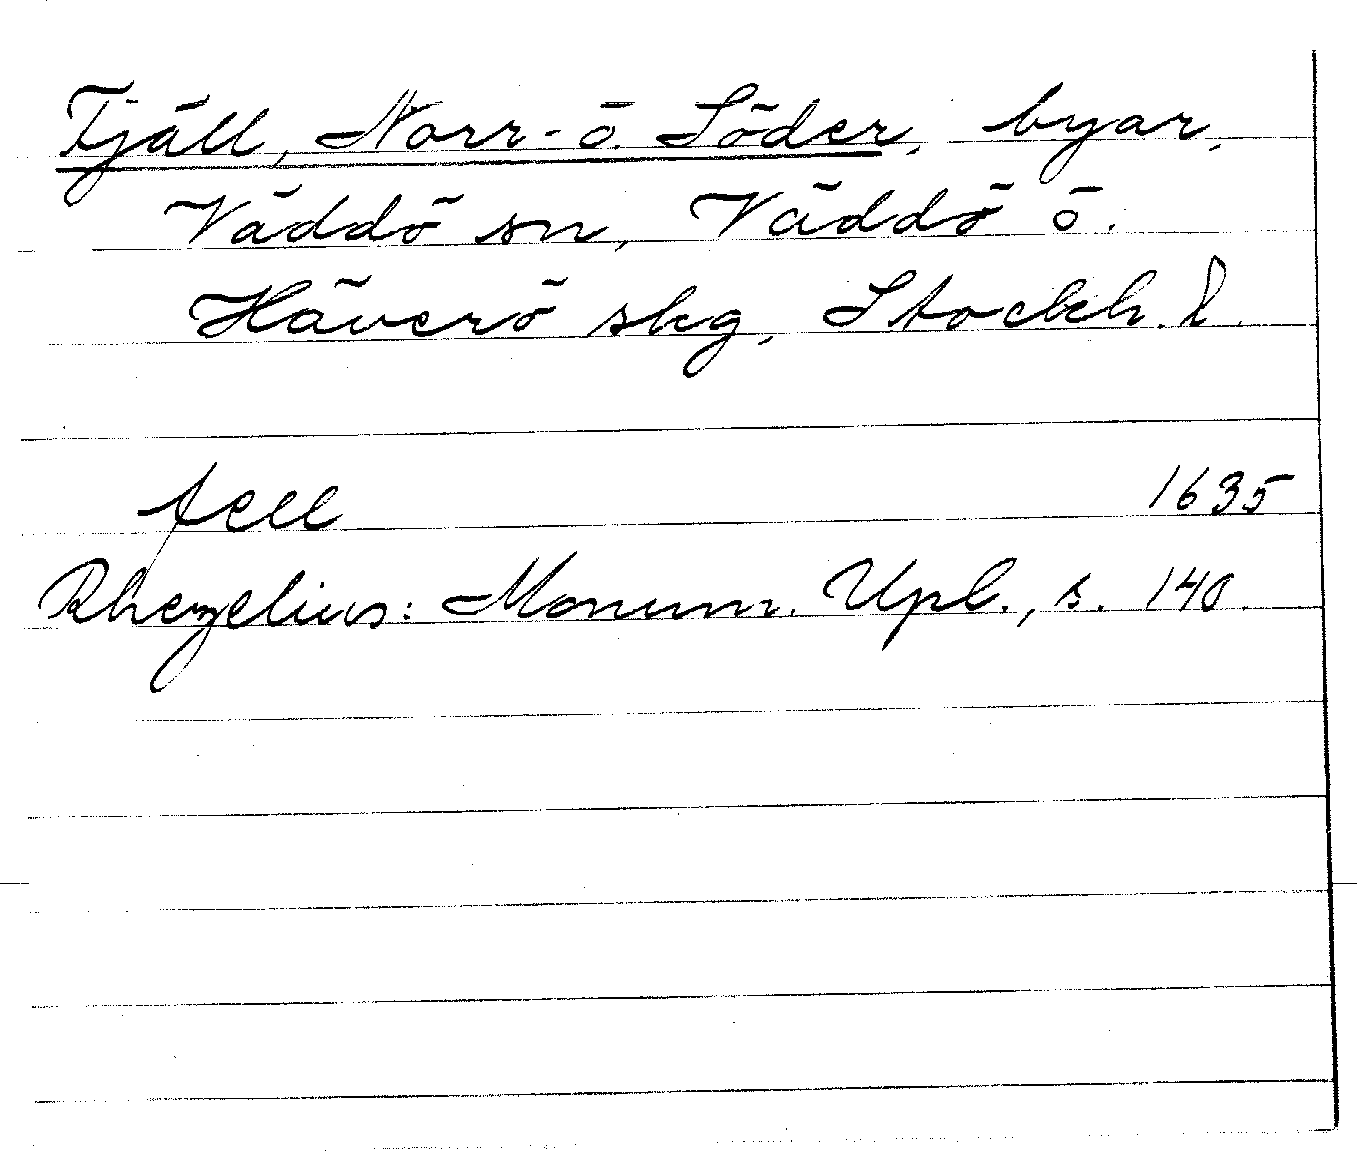 Tjäll, Norr- o. Söder, byar,
Väddö sn, Väddö o.
Häverö skg, Stockh. l.
tell 1635
Rhezelius: Monum. Upl., s. 140.